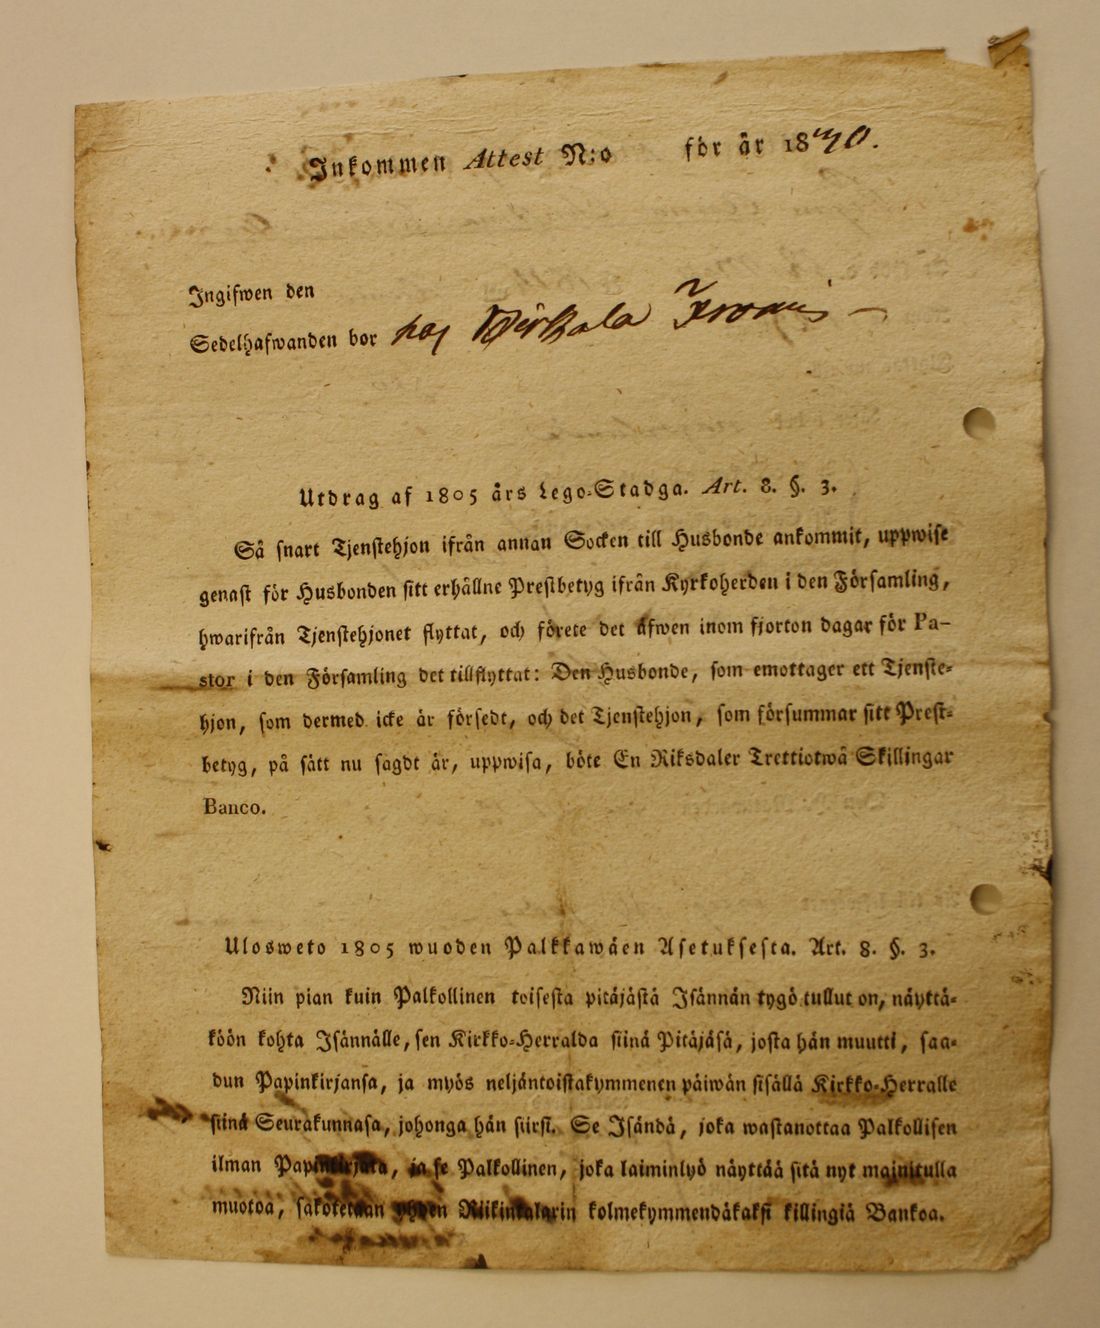 Inkommen Attest N:o för år 1840.
Ingifwen den
Sedelhafwanden bor hos
Utdrag af 1805 års Lego-Stadga. Art. 8. §. 3.
Så snart Tjenstehjon ifrån annan Socken till Husbonde ankommit, uppwise
genast för Husbonden sitt erhållne Prestbetyg ifrån Kyrkoherden i den Församling,
hwarifrån Tjenstehjonet flyttat, och förete det äfwen inom fjorton dagar för Pa-
stor i den Församling det tillflyttat: Den Husbonde, som emottager ett Tjenste-
hjon, som dermed icke är försedt, och det Tjenstehjon, som försummar sitt Prest-
betyg, på sätt nu sagdt är, uppwisa, böte En Riksdaler Trettiotwå Skillingar
Banco.
Ulosweto 1805 wuoden Palkkawäen Asetuksesta. Art. 8. §. 3.
Niin pian kuin Palkollinen toisesta pitäjästä Isännän tygö tullut on, näyttä-
köön kohta Isännälle, sen Kirkko-Herralda siinä Pitäjäsä, josta hän muutti, saa-
dun Papinkirjansa, ja myös neljäntoistakymmenen päiwän sisällä Kirkko-Herralle
siinä Seurakunnasa, johonga hän siirsi. Se Isändä, joka wastanottaa Palkollisen
ilman Papinkirjata, ja se Palkollinen, joka laiminlyö näyttää sitä nyt mainitulla
muotoa, sakotetaan yhden Riikintalarin kolmekymmendäkaksi killingiä Bankoa.